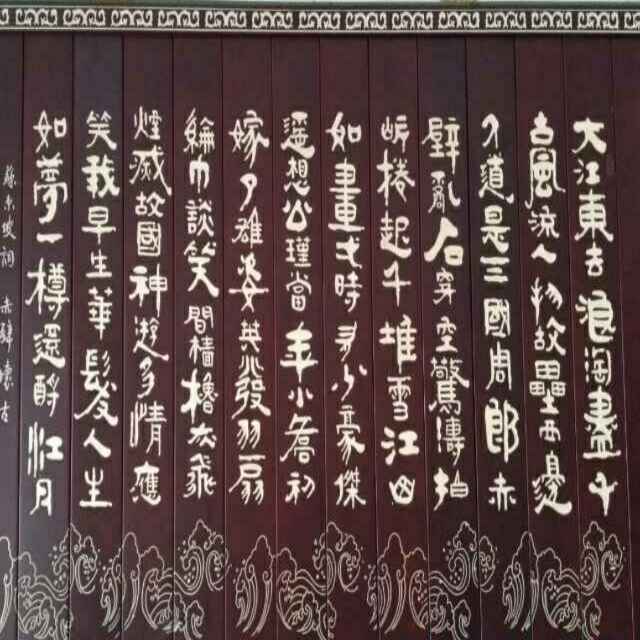 大江東去浪淘盡千
古風流人物故壘西邊
人道是三國周郎赤
壁亂石穿空驚濤拍
岸捲起千堆雪江山
如畫弌時多少豪傑
遙想公瑾當年小喬初
嫁了雄姿英發羽扇
綸巾談笑間檣櫓灰飛
煙滅故國神遊多情應
笑我早生華髮人生
如夢一樽還酹江月
蘇東坡詞 赤壁懷古